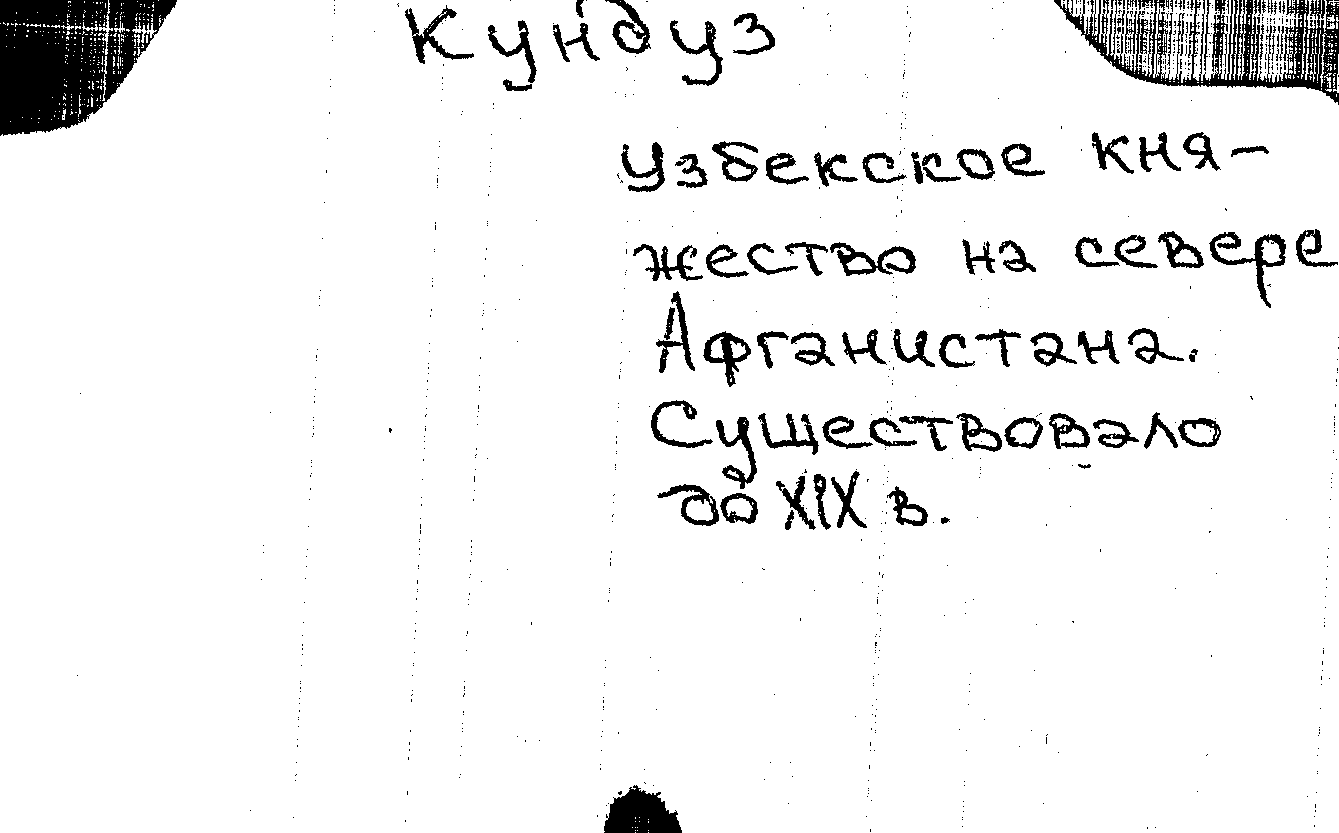 Кундуз
Узбекское кня-
жество на севере
Афганистана.
Существовало
до XIX в.